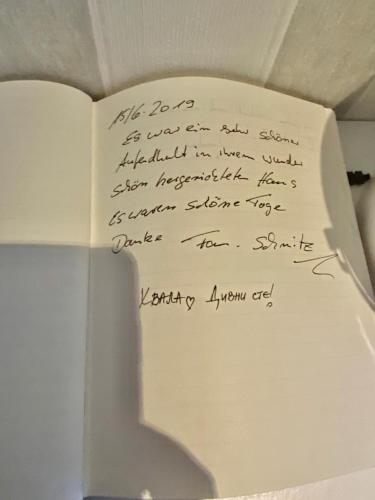 15/6.2019
Es war ein sehr schöner
Aufendhalt in ihrem wunder
schön hergerichteten Haus
Es waren schöne Tage
Danke Fam. Schmitz
Хвала♡ Дивни сте!